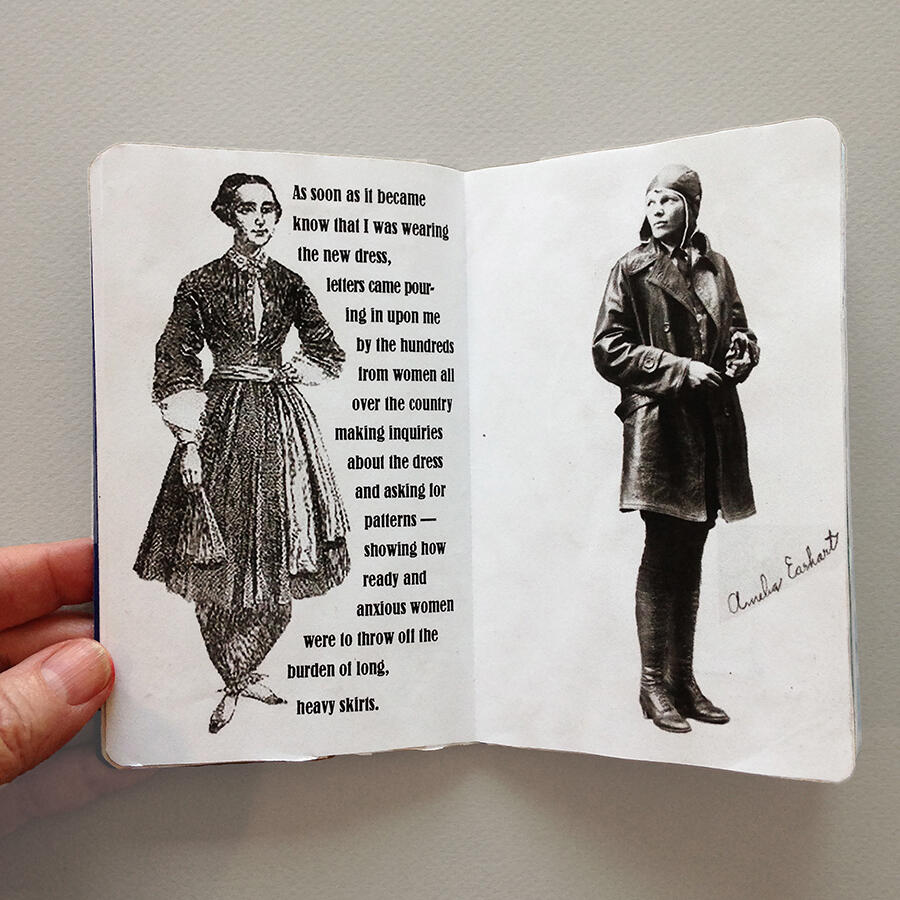 As soon as it became
know that I was wearing
the new dress,
letters came pour-
ing in upon me
by the hundreds
from women all
over the country
making inquiries
about the dress
and asking for
patterns —
showing how
ready and
anxious women
were to throw off the
burden of long,
heavy skirts.
Amelia Earhart